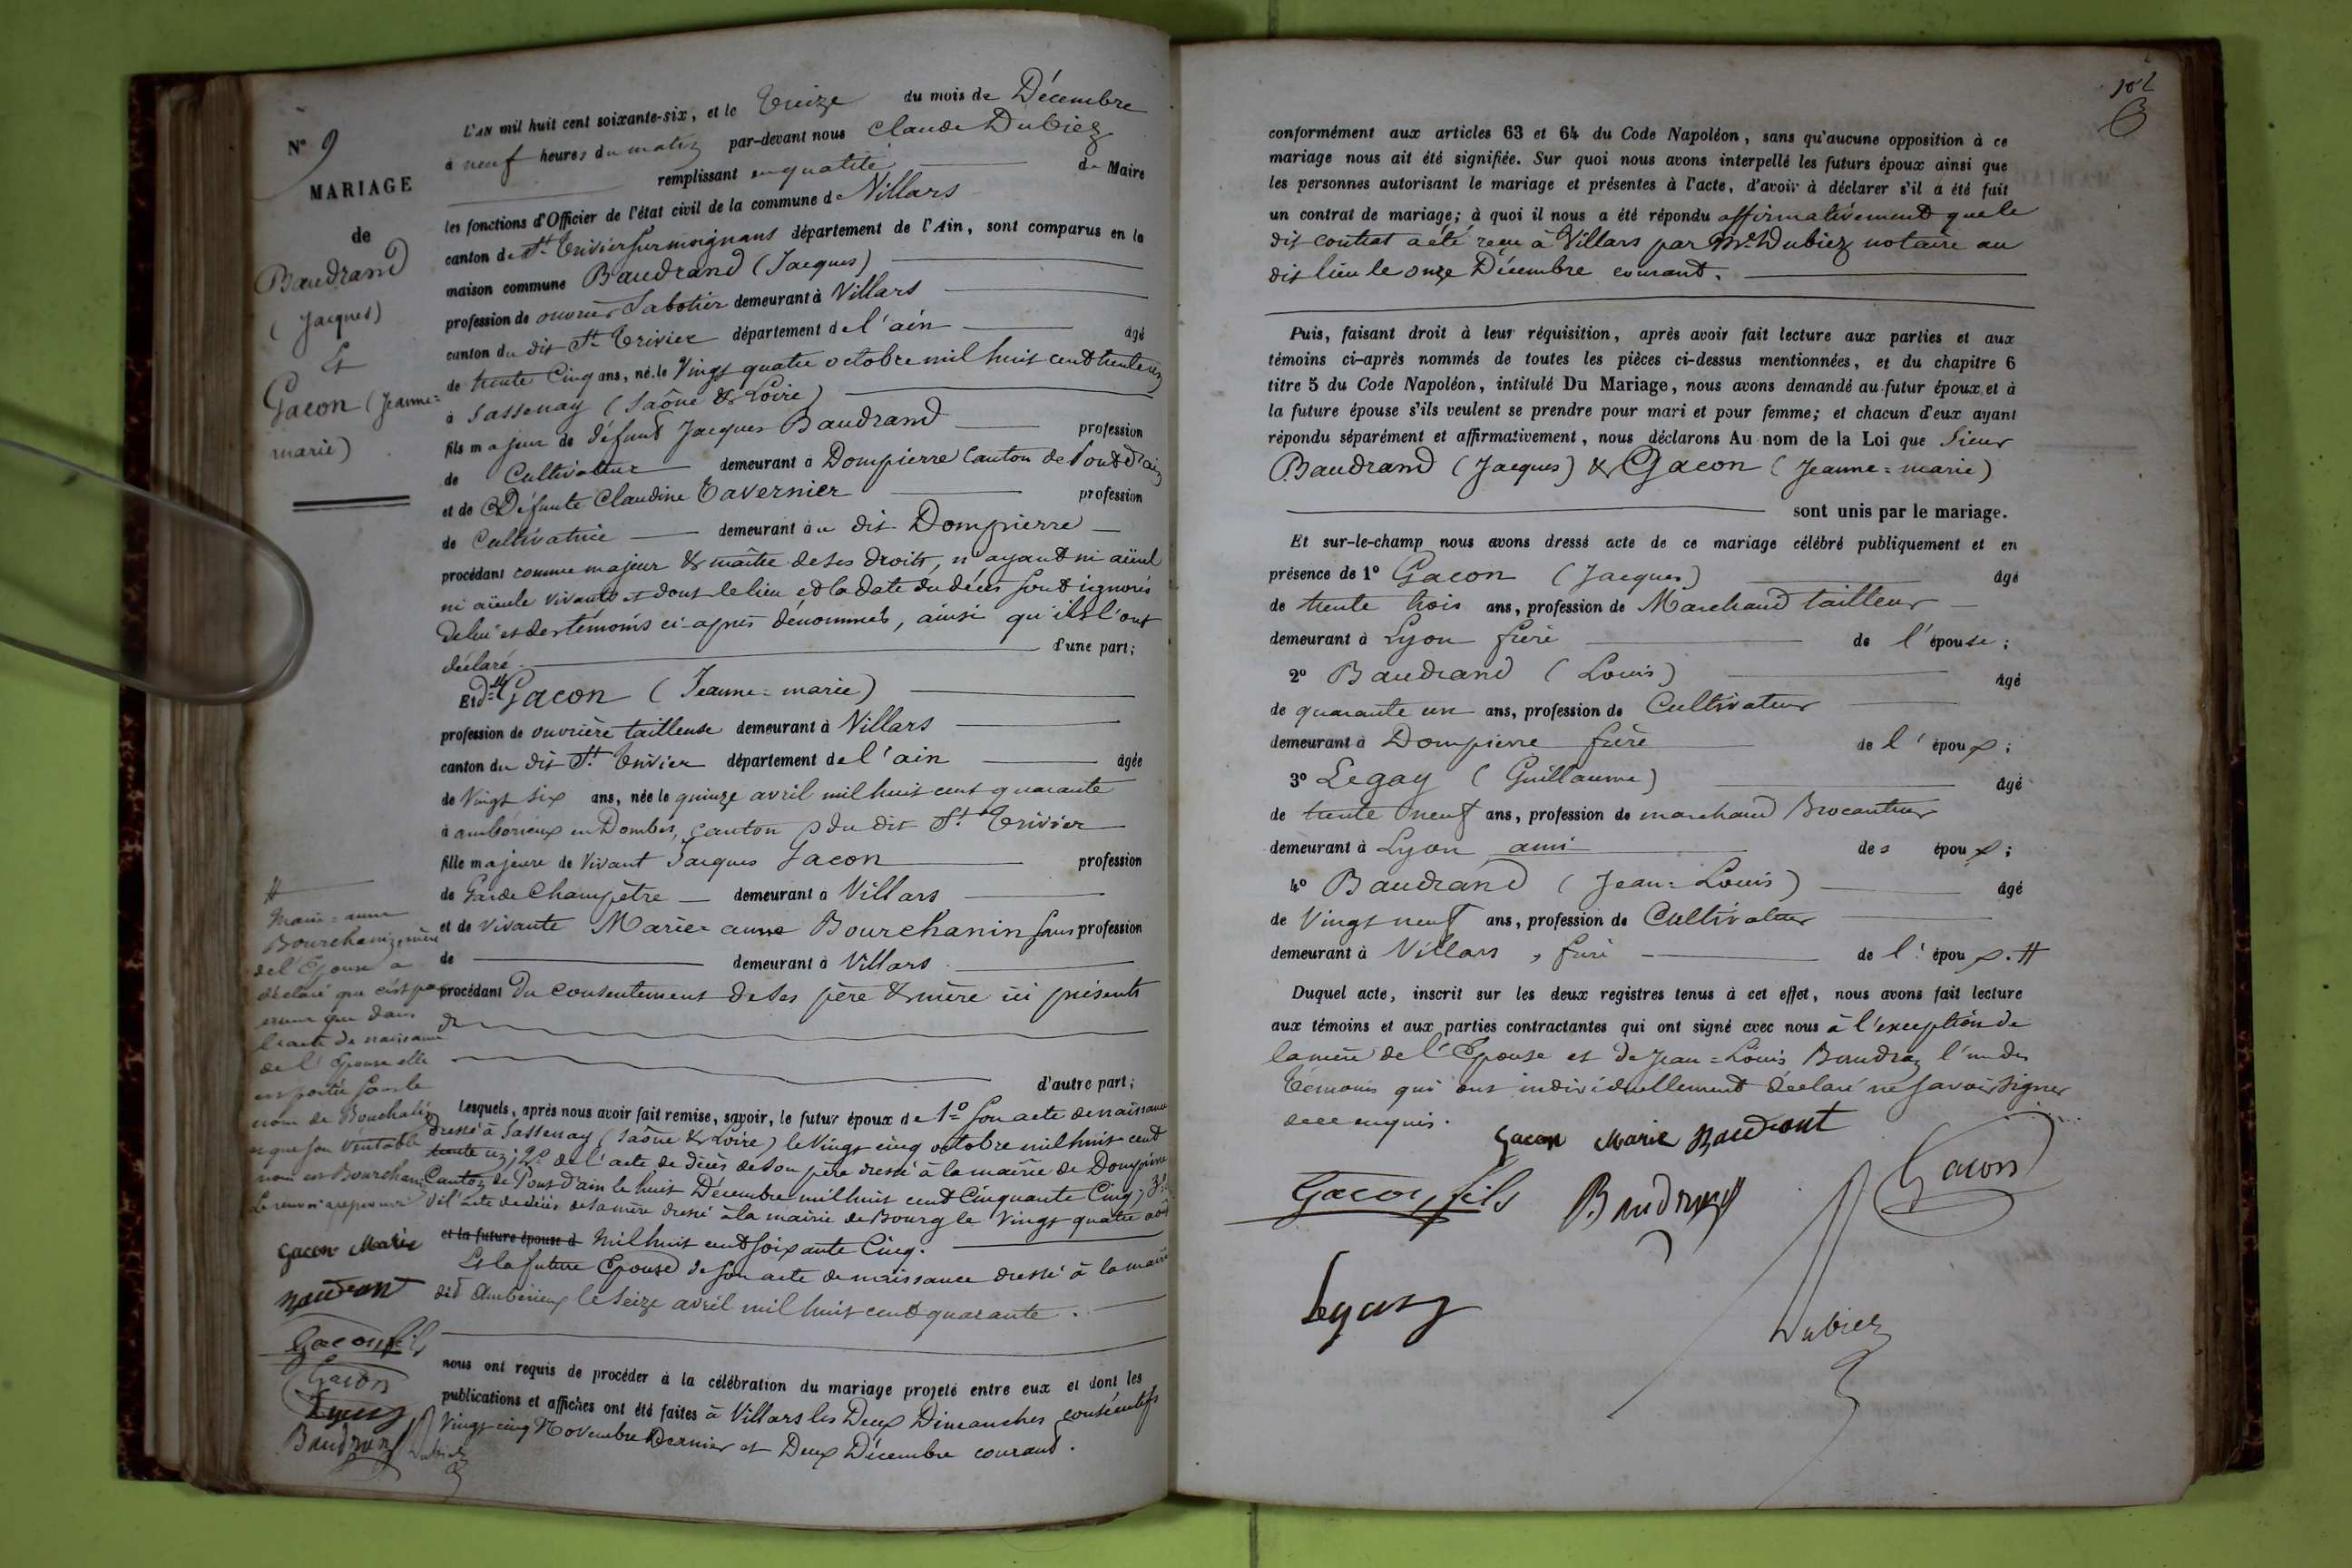 N° 9
MARIAGE
de
Baudrand
(Jacques)
Et
Gacon (Jeanne=
marie)
L'AN mil huit cent soixante-six, et le Treize du mois de Décembre
à neuf heures du matin par-devant nous Claude Dubiez
remplissant en qualité de Maire
les fonctions d'Officier de l'état civil de la commune de Villars
canton de St Trivier sur moignans département de l'Ain, sont comparus en la
maison commune Baudrand (Jacques)
profession de ouvrier Sabotier demeurant à Villars
canton du dit St Trivier département de l'ain âgé
de trente Cinq ans, né le Vingt quatre octobre mil huit cent trente un
à Sassenay (Saône & Loire)
fils majeur de défunt Jacques Baudrand profession
de Cultivateur demeurant à Dompierre Canton de Pont d'ain
et de Défunte Claudine Tavernier profession
de Cultivatrice demeurant à u dit Dompierre
procédant comme majeur & maître de ses droits, n'ayant ni aïeul
ni aïeule vivants et dont le lieu et la date du décès sont ignorés
de lui et des témoins ci-après dénommés, ainsi qu'ils l'ont
déclaré. d'une part;
Et dlle Gacon (Jeanne=marie)
profession de ouvrière tailleuse demeurant à Villars
canton du dit St Trivier département de l'ain âgée
de Vingt six ans, née le quinze avril mil huit cent quarante
à ambérieux en Dombes, canton du dit St Trivier
fille majeure de Vivant Jacques Gacon profession
de Garde Champêtre demeurant à Villars
et de vivante Marie=anne Bourchanin sans profession
de demeurant à Villars
procédant Du consentement de ses père & mère ici présents
d'autre part;
Lesquels, après nous avoir fait remise, savoir, le futur époux de 1° Son acte de naissance
dressé à Sassenay (Saône & Loire) le Vingt cinq octobre mil huit cent
trente un; 2° de l'acte de décès de son père dressé à la mairie de Dompierre
Canton de Pont d'ain le huit Décembre mil huit cent Cinquante Cinq; 3°
de l'acte de décès de sa mère dressé à la mairie de Bourg le Vingt quatre août
et la future épouse d mil huit cent soixante Cinq.
Et la future Epouse de son acte de naissance dressé à la mairie
dit Ambérieux le Seize avril mil huit cent quarante.
nous ont requis de procéder à la célébration du mariage projeté entre eux et dont les
publications et affiches ont été faites à Villars les Deux Dimanches consécutifs
Vingt cinq Novembre Dernier et Deux Décembre courant.
#
Marie=anne
Bourchanin, mère
de l'Epouse a
déclaré que c'est par
erreur que dans
l'acte de naissance
de l'Epouse elle
est portée sous le
nom de Bouchalin
et que son véritable
nom est Bourchanin
Gacon Marie
Baudront
Gacon fils
Gacon
Legay
Baudrand
Dubiez
102
conformément aux articles 63 et 64 du Code Napoléon, sans qu'aucune opposition à ce
mariage nous ait été signifiée. Sur quoi nous avons interpellé les futurs époux ainsi que
les personnes autorisant le mariage et présentes à l'acte, d'avoir à déclarer s'il a été fait
un contrat de mariage; à quoi il nous a été répondu affirmativement que le
dit contrat a été reçu à Villars par Me Dubiez notaire au
dit lieu le onze Décembre courant.
Puis, faisant droit à leur réquisition, après avoir fait lecture aux parties et aux
témoins ci-après nommés de toutes les pièces ci-dessus mentionnées, et du chapitre 6
titre 5 du Code Napoléon, intitulé Du Mariage, nous avons demandé au futur époux et à
la future épouse s'ils veulent se prendre pour mari et pour femme; et chacun d'eux ayant
répondu séparément et affirmativement, nous déclarons Au nom de la Loi que Sieur
Baudrand (Jacques) & Gacon (Jeanne=marie)
sont unis par le mariage.
Et sur-le-champ nous avons dressé acte de ce mariage célébré publiquement et en
présence de 1° Gacon (Jacques) âgé
de trente trois ans, profession de Marchand tailleur
demeurant à Lyon frère de l'épouse;
2° Baudrand (Louis) âgé
de quarante un ans, profession de Cultivateur
demeurant à Dompierre frère de l'époux;
3° Legay (Guillaume) âgé
de trente neuf ans, profession de marchand Brocanteur
demeurant à Lyon ami des époux;
4° Baudrand (Jean=Louis) âgé
de Vingt neuf ans, profession de Cultivateur
demeurant à Villars, frère de l'époux. #
Duquel acte, inscrit sur les deux registres tenus à cet effet, nous avons fait lecture
aux témoins et aux parties contractantes qui ont signé avec nous à l'exception de
la mère de l'Epouse et de Jean=Louis Baudrand l'un des
témoins qui ont individuellement déclaré ne savoir signer
de ce enquis.
Gacon Marie Baudront
Gacon fils Baudrand Gacon
Legay
Dubiez